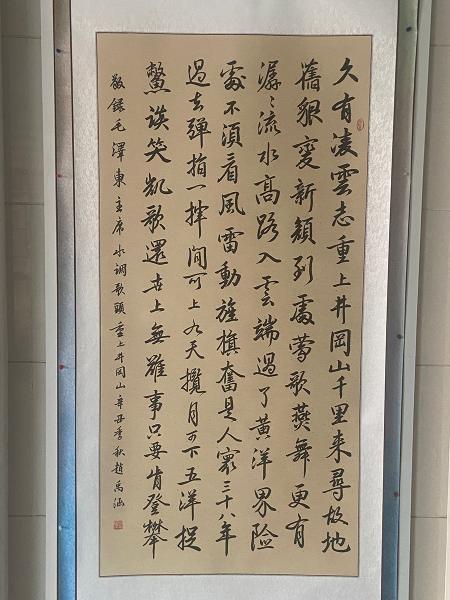 久有凌雲志重上井岡山千里来尋故地
舊貌變新顔到處鶯歌燕舞更有
潺〻流水高路入雲端過了黄洋界險
處不須看風雷動旌旗奮是人寰三十八年
過去彈指一揮间可上九天攬月可下五洋捉
鱉談笑凱歌還世上無難事只要肯登攀
敬錄毛澤東主席水调歌頭重上井岡山辛丑季秋趙禹涵